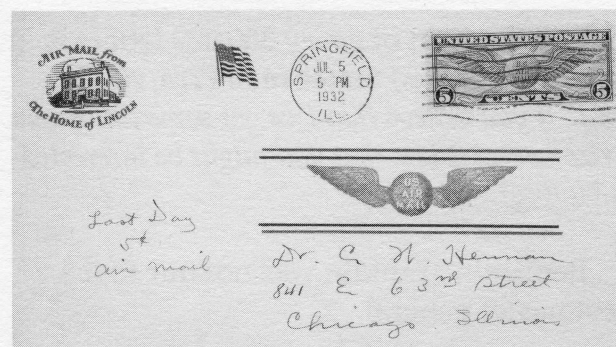 AIR MAIL from
The HOME of LINCOLN
SPRINGFIELD
JUL 5
5 PM
1932
ILL.
UNITED STATES POSTAGE
5 CENTS 5
U.S.
AIR
MAIL
Last Day
5¢
air mail
Dr. C. N. Hennan
841 E 63rd Street
Chicago Illinois